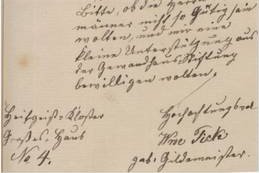 Bitte, ob die Herren
männer nicht so Gütig sein
wollten, und mir eine
kleine Unterstützung aus
der Gewandhaus Stiftung
bewilligen wollten.
Heitgeist-Kloster
Großes Haus
No 4.
Hochachtungsvol
Wwe Fick
geb. Gildemeister.